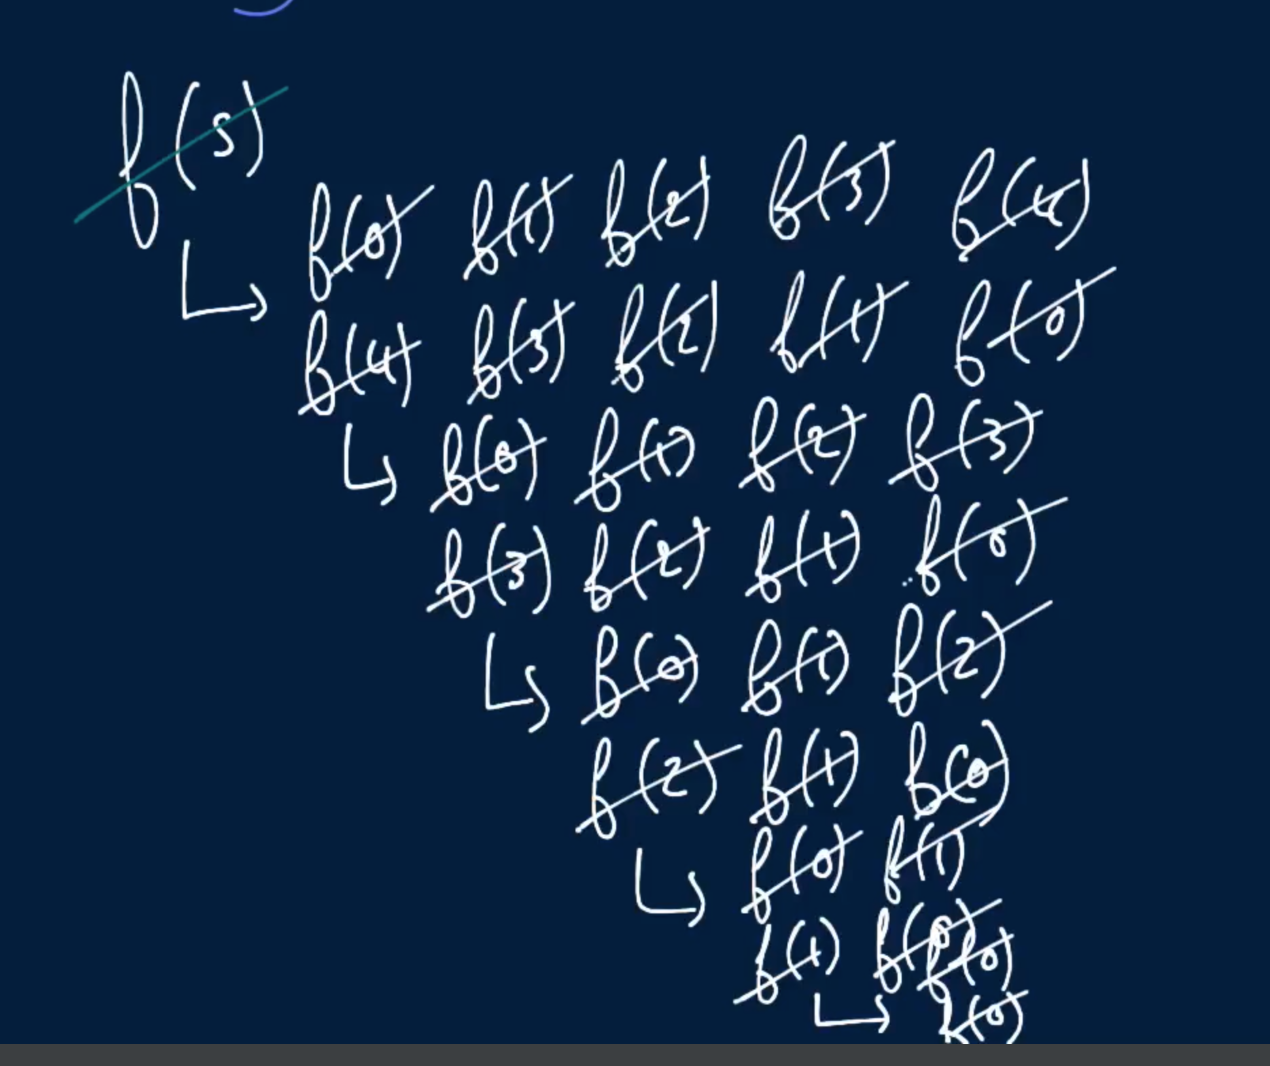 f(5)
f(0) f(1) f(2) f(3) f(4)
f(4) f(3) f(2) f(1) f(0)
f(0) f(1) f(2) f(3)
f(3) f(2) f(1) f(0)
f(0) f(1) f(2)
f(2) f(1) f(0)
f(0) f(1)
f(1) f(0)
f(0)
f(0)